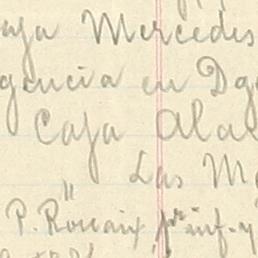 aja Mercedes
gencia en Dg
Caja Ala
Las M
"
P. Rouaix pr inf. y